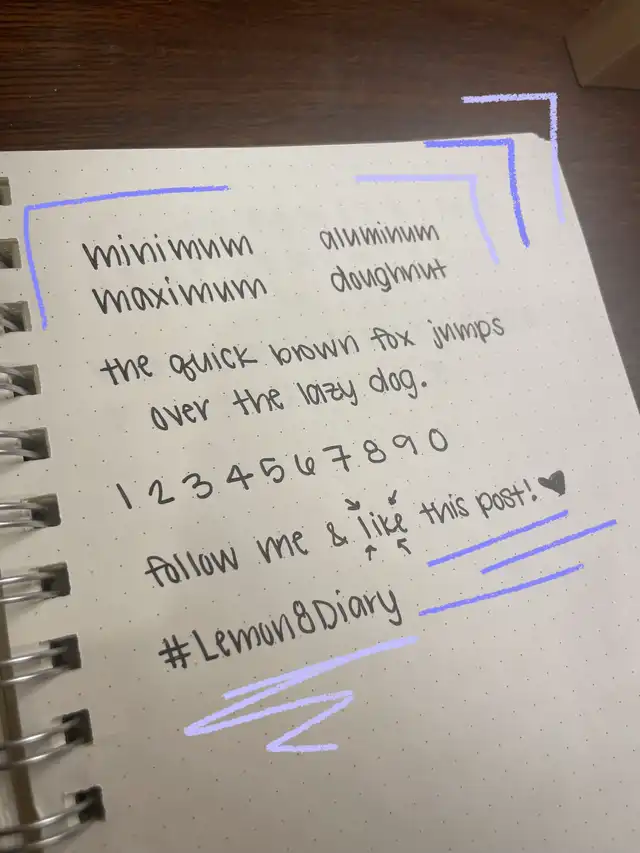 minimum aluminum
maximum doughnut
the quick brown fox jumps
over the lazy dog.
1 2 3 4 5 6 7 8 9 0
follow me & like this post! ♥
#Lemon8Diary